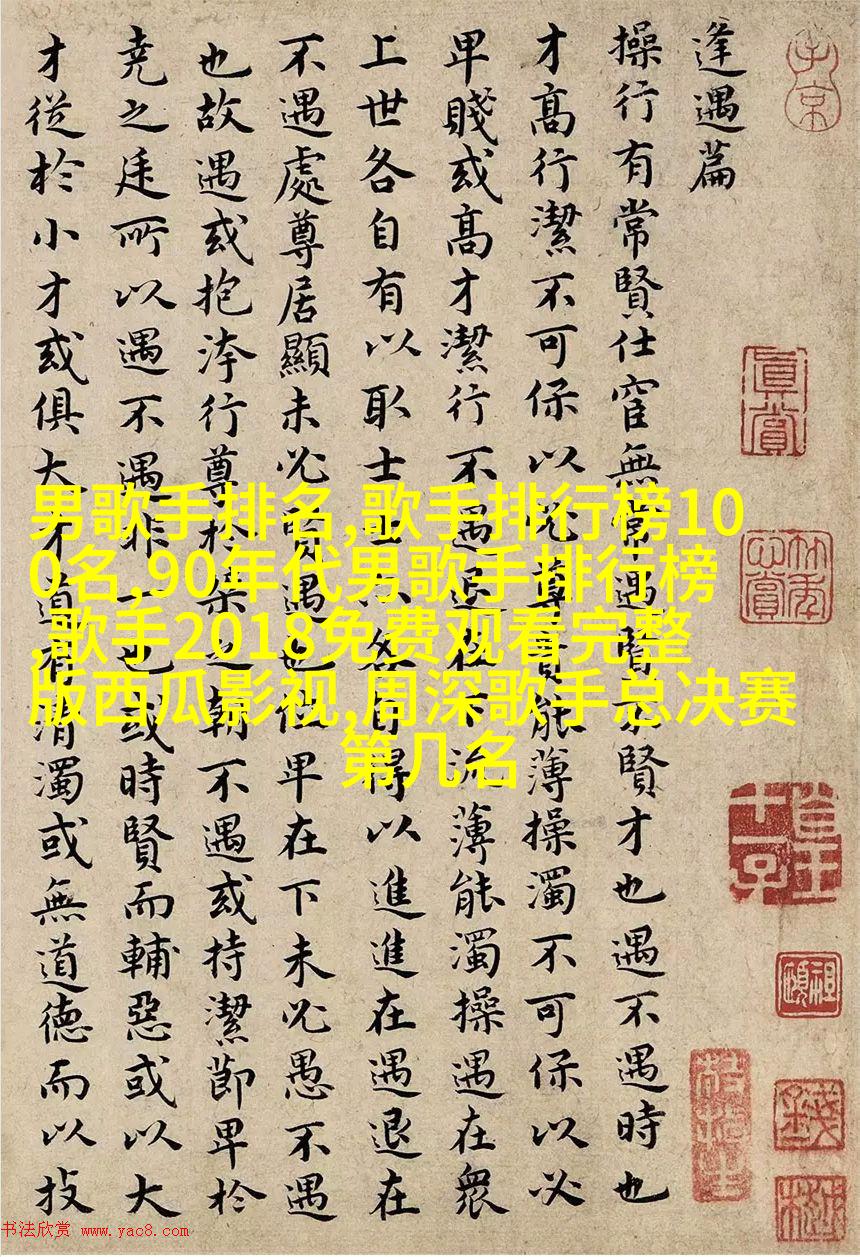 逢遇篇
操行有常賢仕宦無常遇賢不賢才也遇不遇時也
才高行潔不可保以必尊貴能薄操濁不可保以必
卑賤或高才潔行不遇退在下流薄能濁操遇在衆
上世各自有以取士士亦各自得以進進在遇退在
不遇處尊居顯未必賢遇也位卑在下未必愚不遇
也故遇或抱洿行尊於桀之朝不遇或持潔節卑於
堯之廷所以遇不遇非一也或時賢而輔惡或以大
才從於小才或俱大才道有清濁或無道德而以技
男歌手排名,歌手排行榜10
0名,90年代男歌手排行榜
,歌手2018免费观看完整
版西瓜影视,周深歌手总决赛
第几名
子京
眞賞
书法欣赏 www.yac8.com